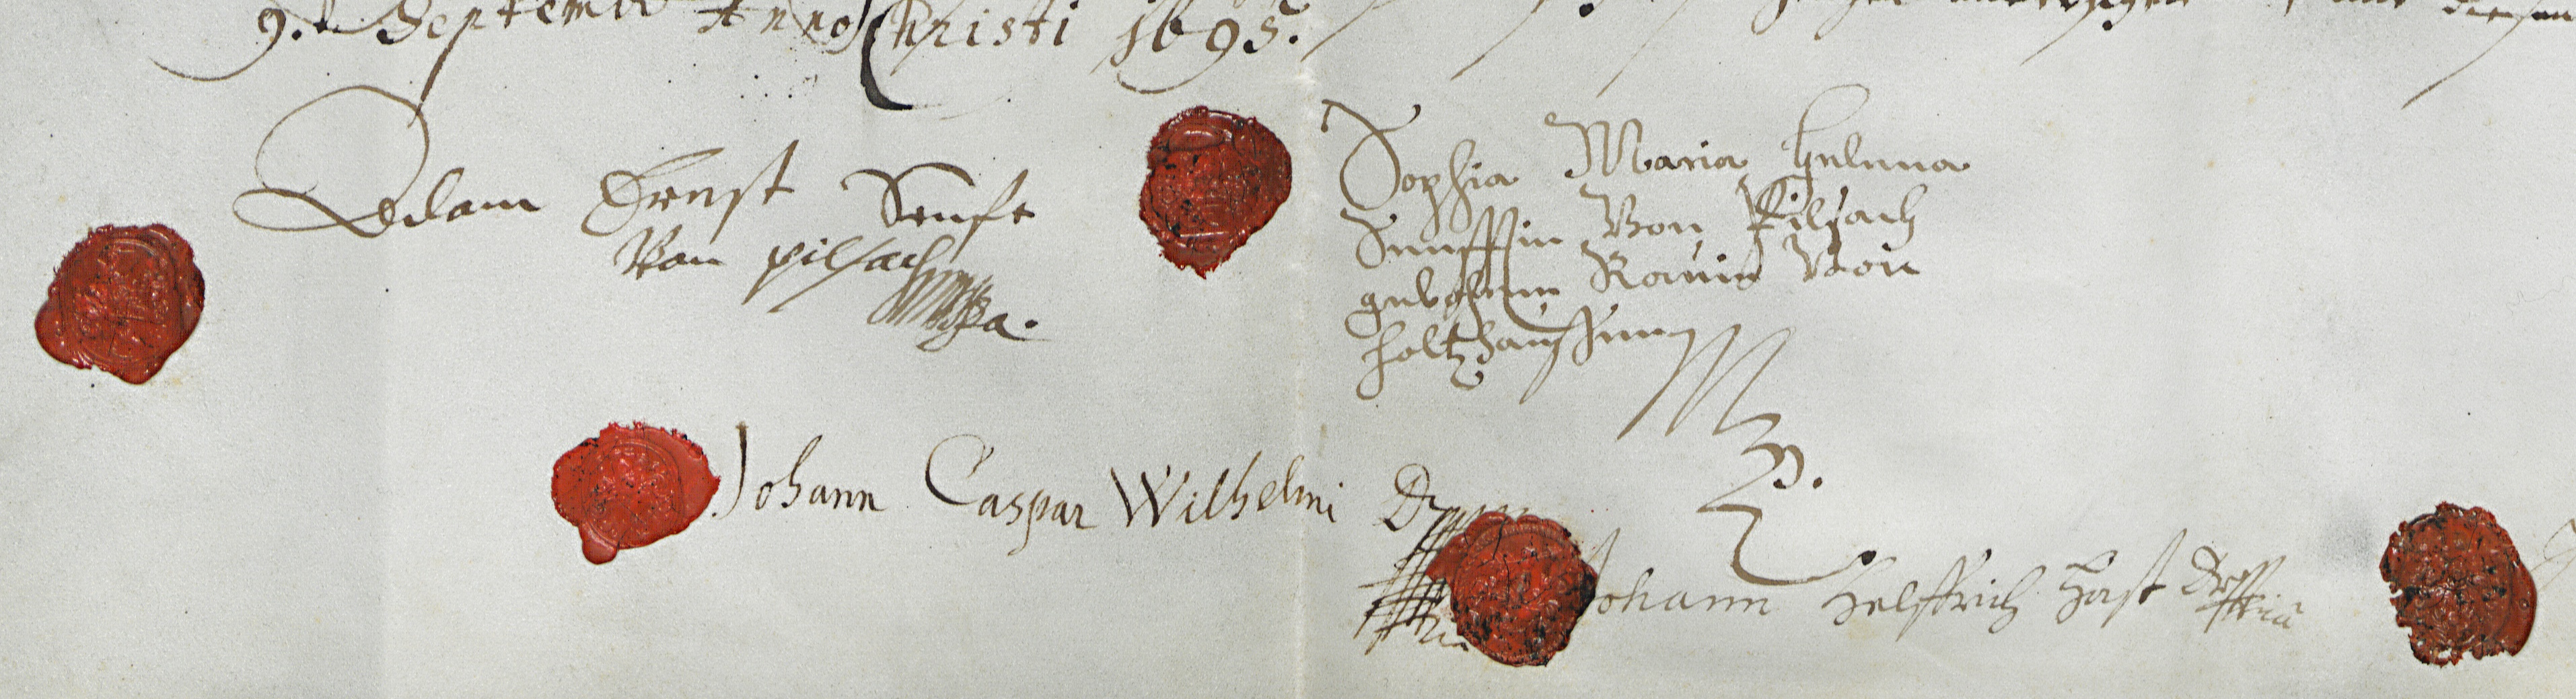 9. Septembr Anno Christi 1695.
Adam Ernst Senfft
Von pilsach
Sophia Maria Helena
Senfftin Von Pilsach
gebohrne Rauin Von
Holtzhaussen
Johann Caspar Wilhelmi Dr
Johann Helffrich Hast